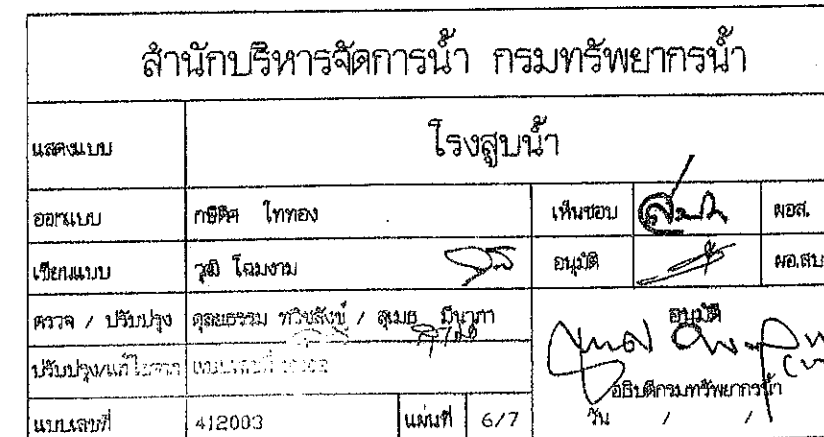 สำนักบริหารจัดการน้ำ กรมทรัพยากรน้ำ
แสดงแบบ โรงสูบน้ำ
ออกแบบ ไททอง เห็นชอบ ผอส.
เขียนแบบ วุฒิ โฉมงาม อนุมัติ
ตรวจ / ปรับปรุง ดุลยธรรม ทวิชสังข์ / สุเมธ มีนาภา อนุมัติ
ปรับปรุง/แก้ไขจาก แบบเลขที่
อธิบดีกรมทรัพยากรน้ำ
แบบเลขที่ 412003 แผ่นที่ 6/7 วัน / /